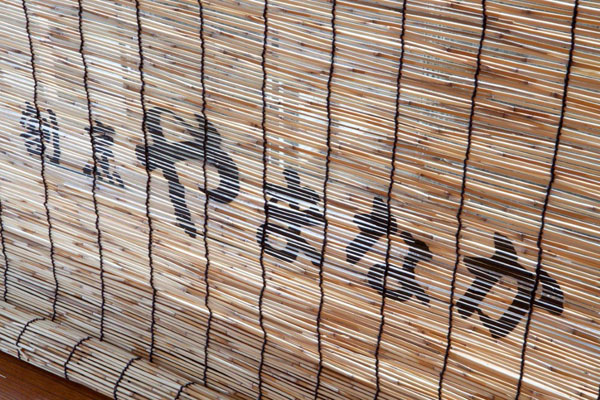 割烹 やまなか